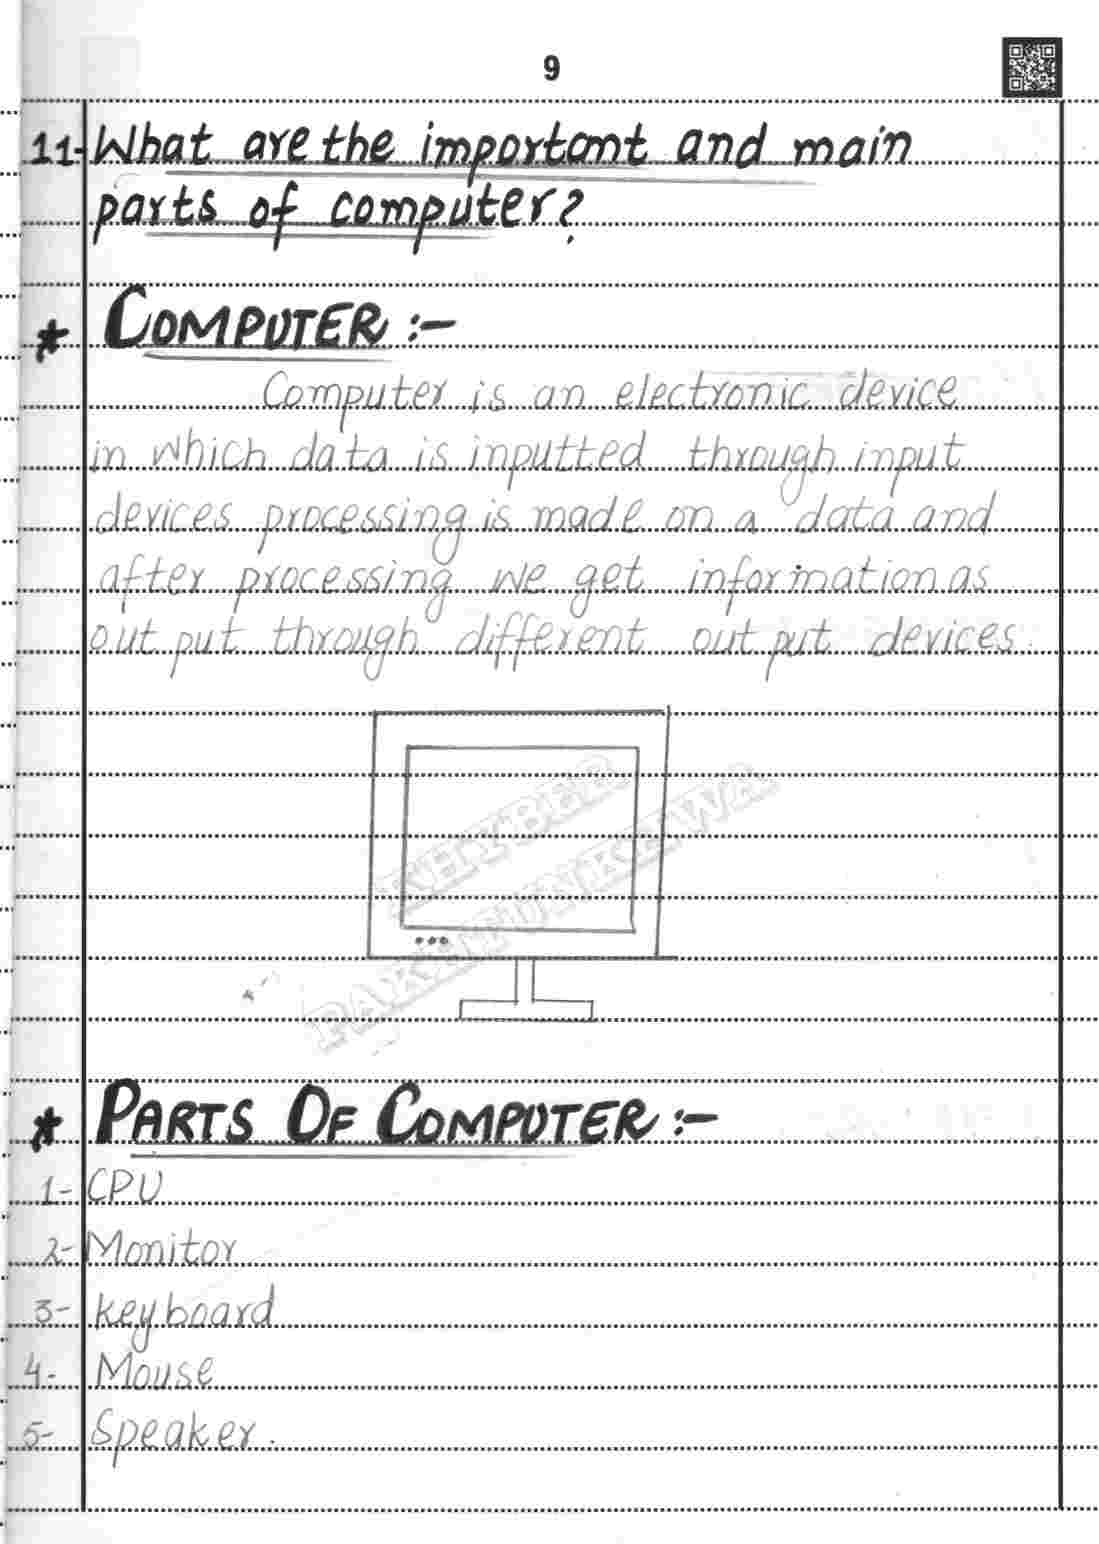 9
11- What are the important and main
parts of computer?
* COMPUTER :-
Computer is an electronic device
in which data is inputted through input
devices processing is made on a data and
after processing we get information as
out put through different out put devices.
KHYBER
PAKHTUNKHWA
* PARTS OF COMPUTER :-
1- CPU
2- Monitor
3- keyboard
4- Mouse
5- Speaker.